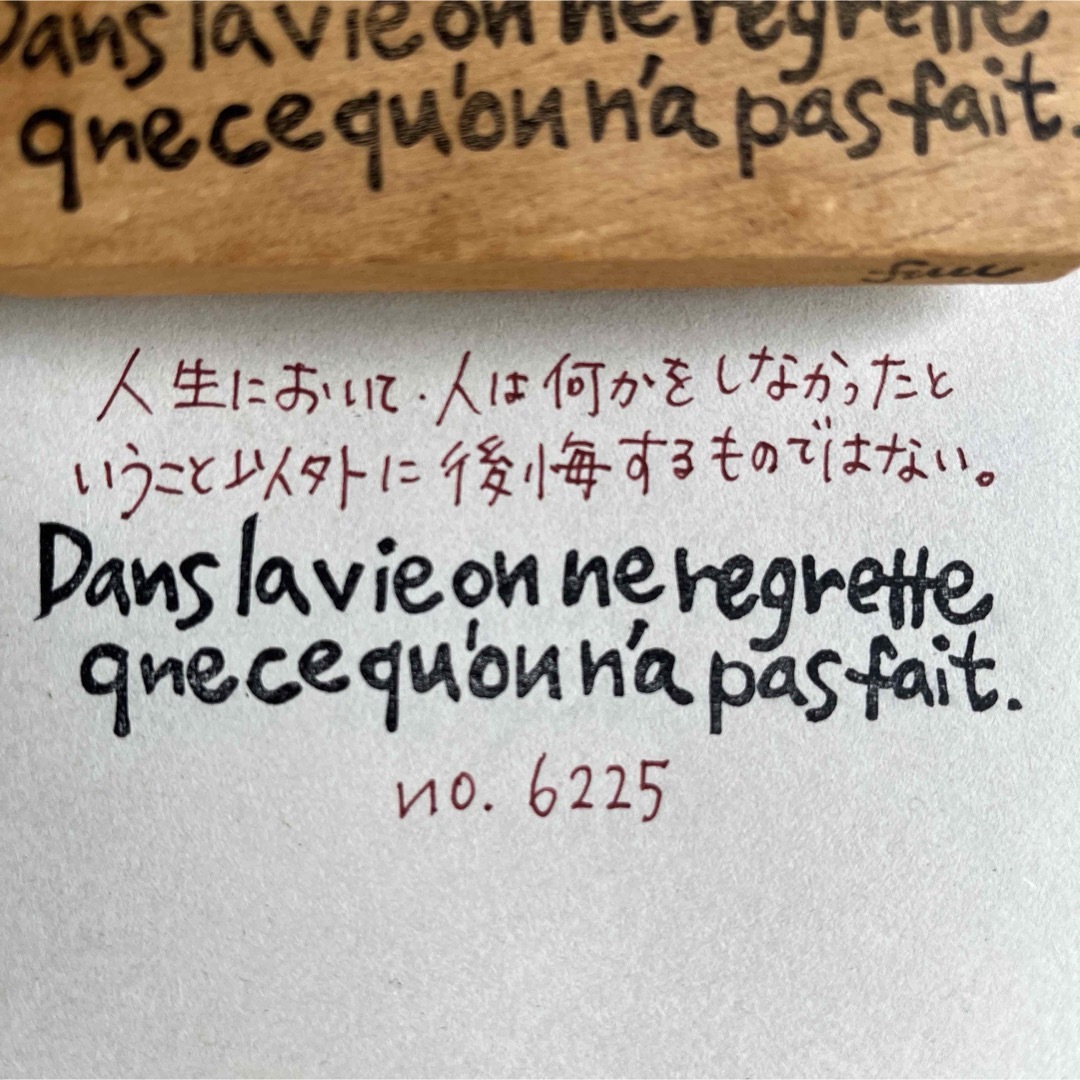 Dans la vie on ne regrette
que ce qu'on n'a pas fait.
人生において、人は何かをしなかったと
いうこと以外に後悔するものではない。
Dans la vie on ne regrette
que ce qu'on n'a pas fait.
no. 6225